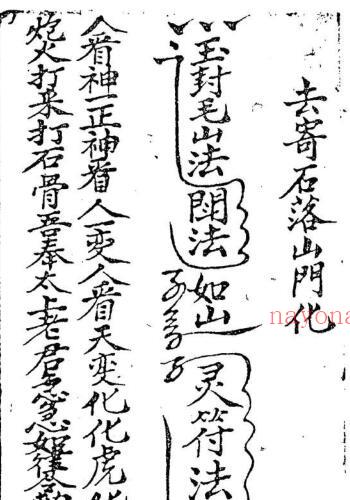 去寄石落山門化
玉封毛山法閗法如山灵符法
人看神一正神看人一变人看天变化化虎
炮火打来打石骨吾奉太上老君急急如律令勅
nayona